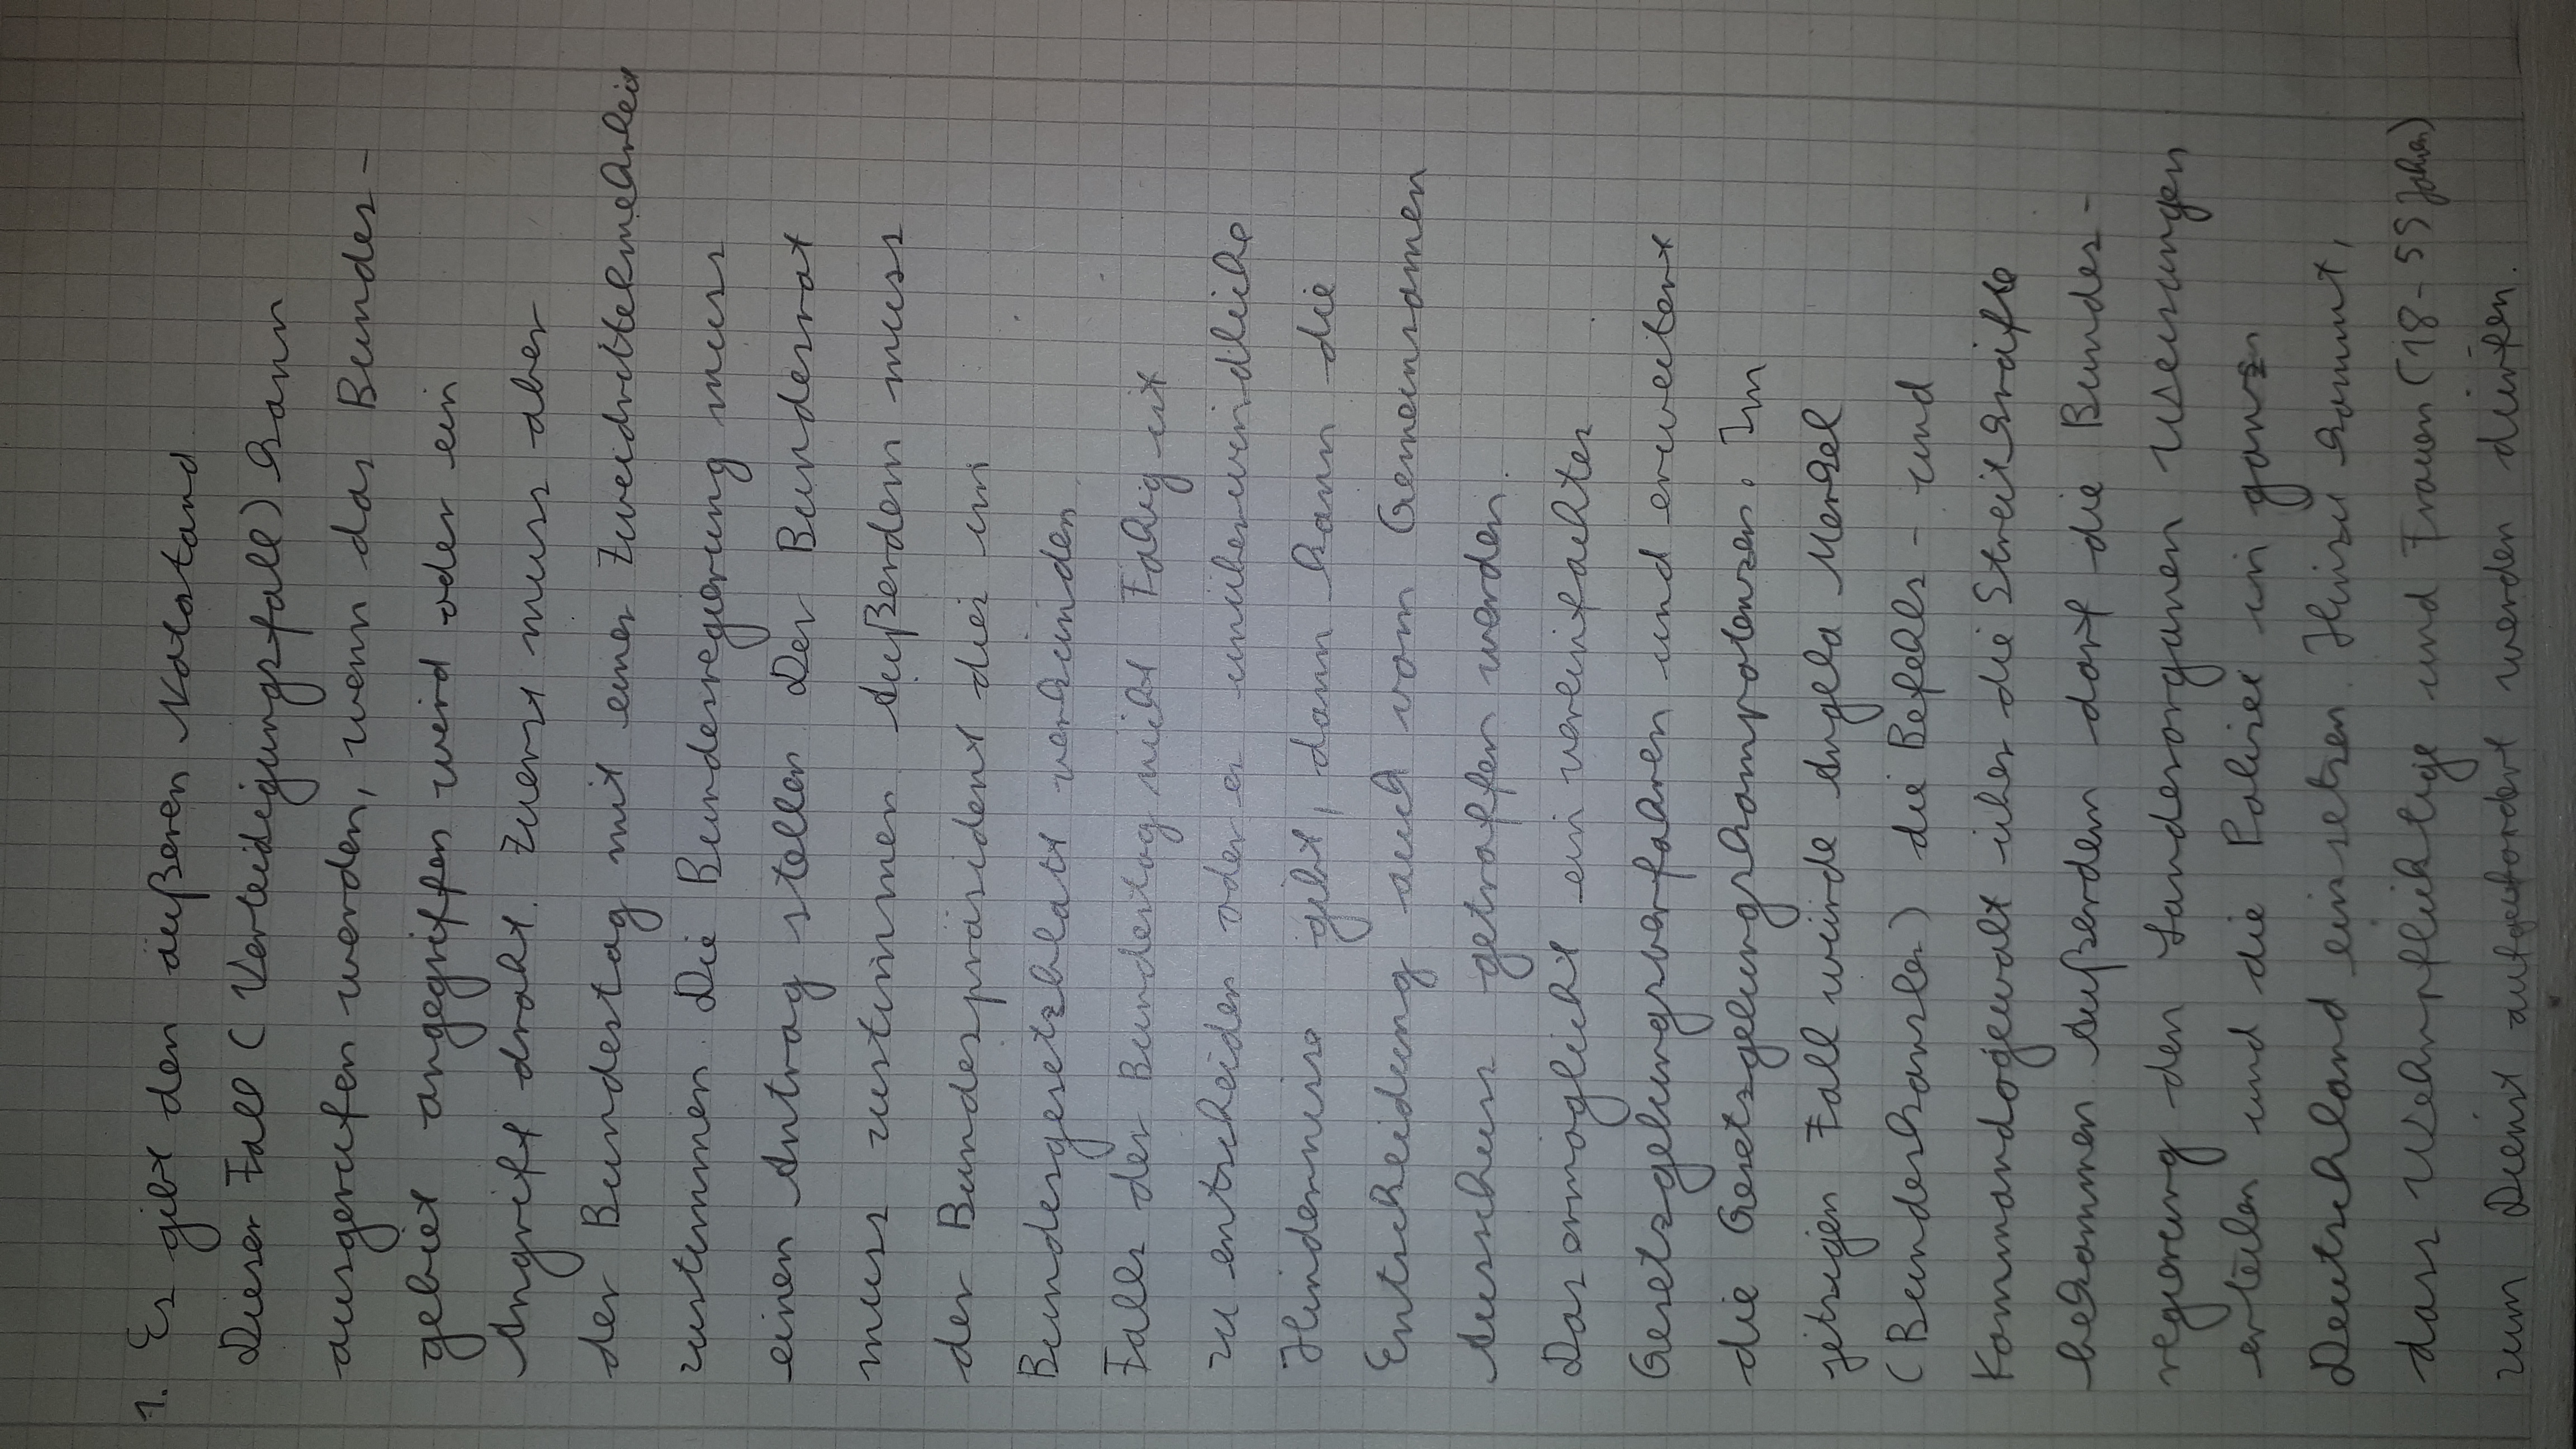 1. Es gibt den äußeren Notstand.
Dieser Fall (Verteidigungsfall) kann
ausgerufen werden, wenn das Bundes-
gebiet angegriffen wird oder ein
Angriff droht. Zuerst muss aber
der Bundestag mit einer Zweidrittelmehrheit
zustimmen. Die Bundesregierung muss
einen Antrag stellen. Der Bundesrat
muss zustimmen. Außerdem muss
der Bundespräsident dies im
Bundesgesetzblatt verkünden.
Falls der Bundestag nicht Fähig ist
zu entscheiden oder es unüberwindliche
Hindernisse gibt, dann kann die
Entscheidung auch vom Gemeinsamen
Ausschuss getroffen werden.
Das ermöglicht ein vereinfachtes
Gesetzgebungsverfahren und erweitert
die Gesetzgebungskompetenzen. Im
jetzigen Fall würde Angela Merkel
(Bundeskanzler) die Befehls- und
Kommandogewalt über die Streitkräfte
bekommen. Außerdem darf die Bundes-
regierung den Landesorganen Weisungen
erteilen und die Polizei in ganz
Deutschland einsetzen. Hinzu kommt,
dass Wehrpflichtige und Frauen (18-55 Jahren)
zum Dienst aufgefordert werden dürfen.